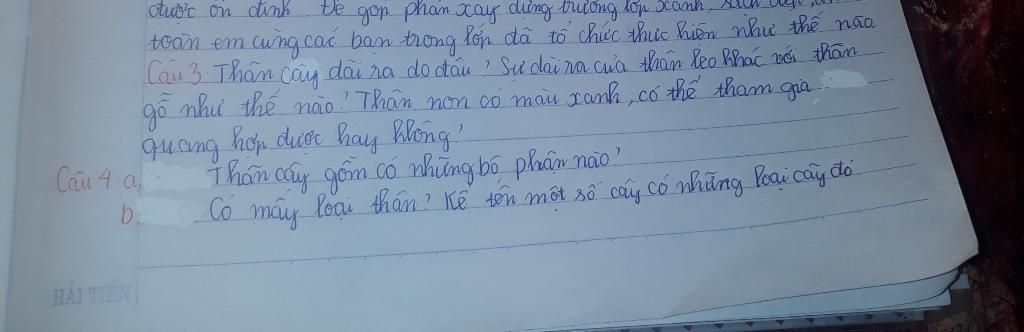 được ổn định. Để góp phần xây dựng trường lớp xanh, sạch đẹp, an
toàn em cùng các bạn trong lớp đã tổ chức thực hiện như thế nào
Câu 3. Thân cây dài ra do đâu? Sự dài ra của thân leo khác với thân
gỗ như thế nào? Thân non có màu xanh, có thể tham gia
quang hợp được hay không?
Câu 4. a, Thân cây gồm có những bộ phận nào?
b, Có mấy loại thân? Kể tên một số cây có những loại cây đó.
HẢI TIẾN